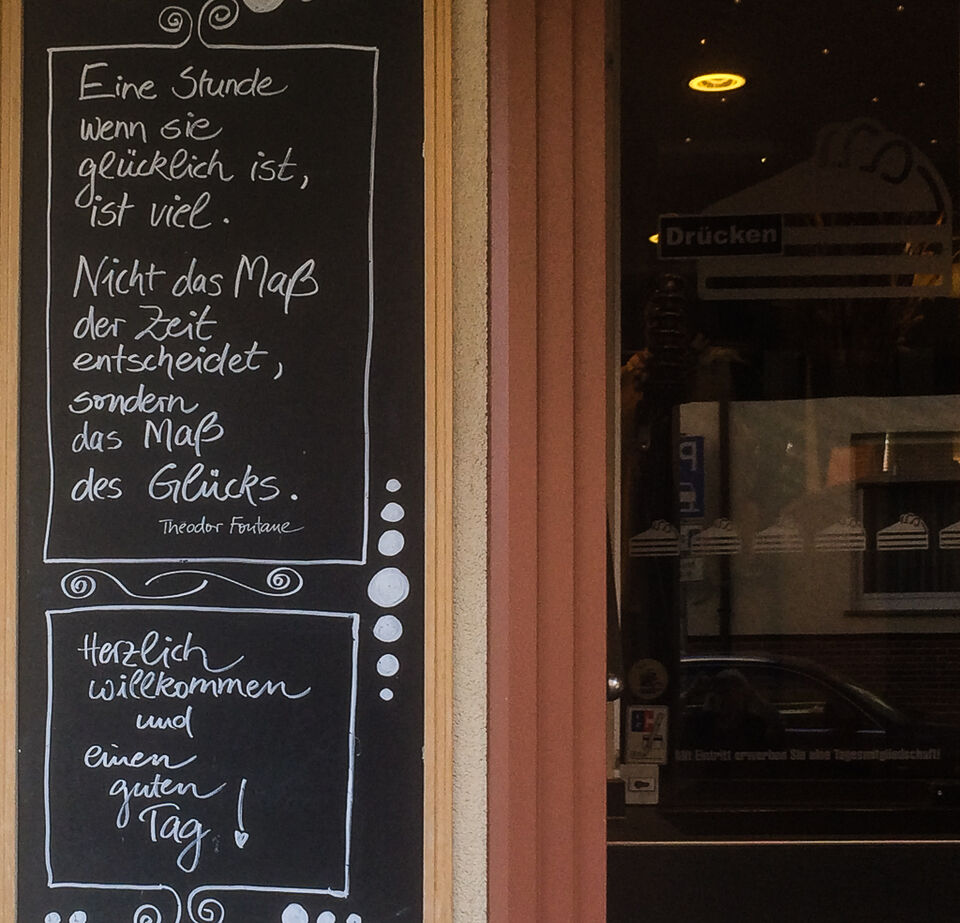 Eine Stunde
wenn sie
glücklich ist,
ist viel.
Nicht das Maß
der Zeit
entscheidet,
sondern
das Maß
des Glücks.
Theodor Fontane
Herzlich
willkommen
und
einen
guten
Tag!
Drücken
P
Mit Eintritt erwerben Sie eine Tagesmitgliedschaft!